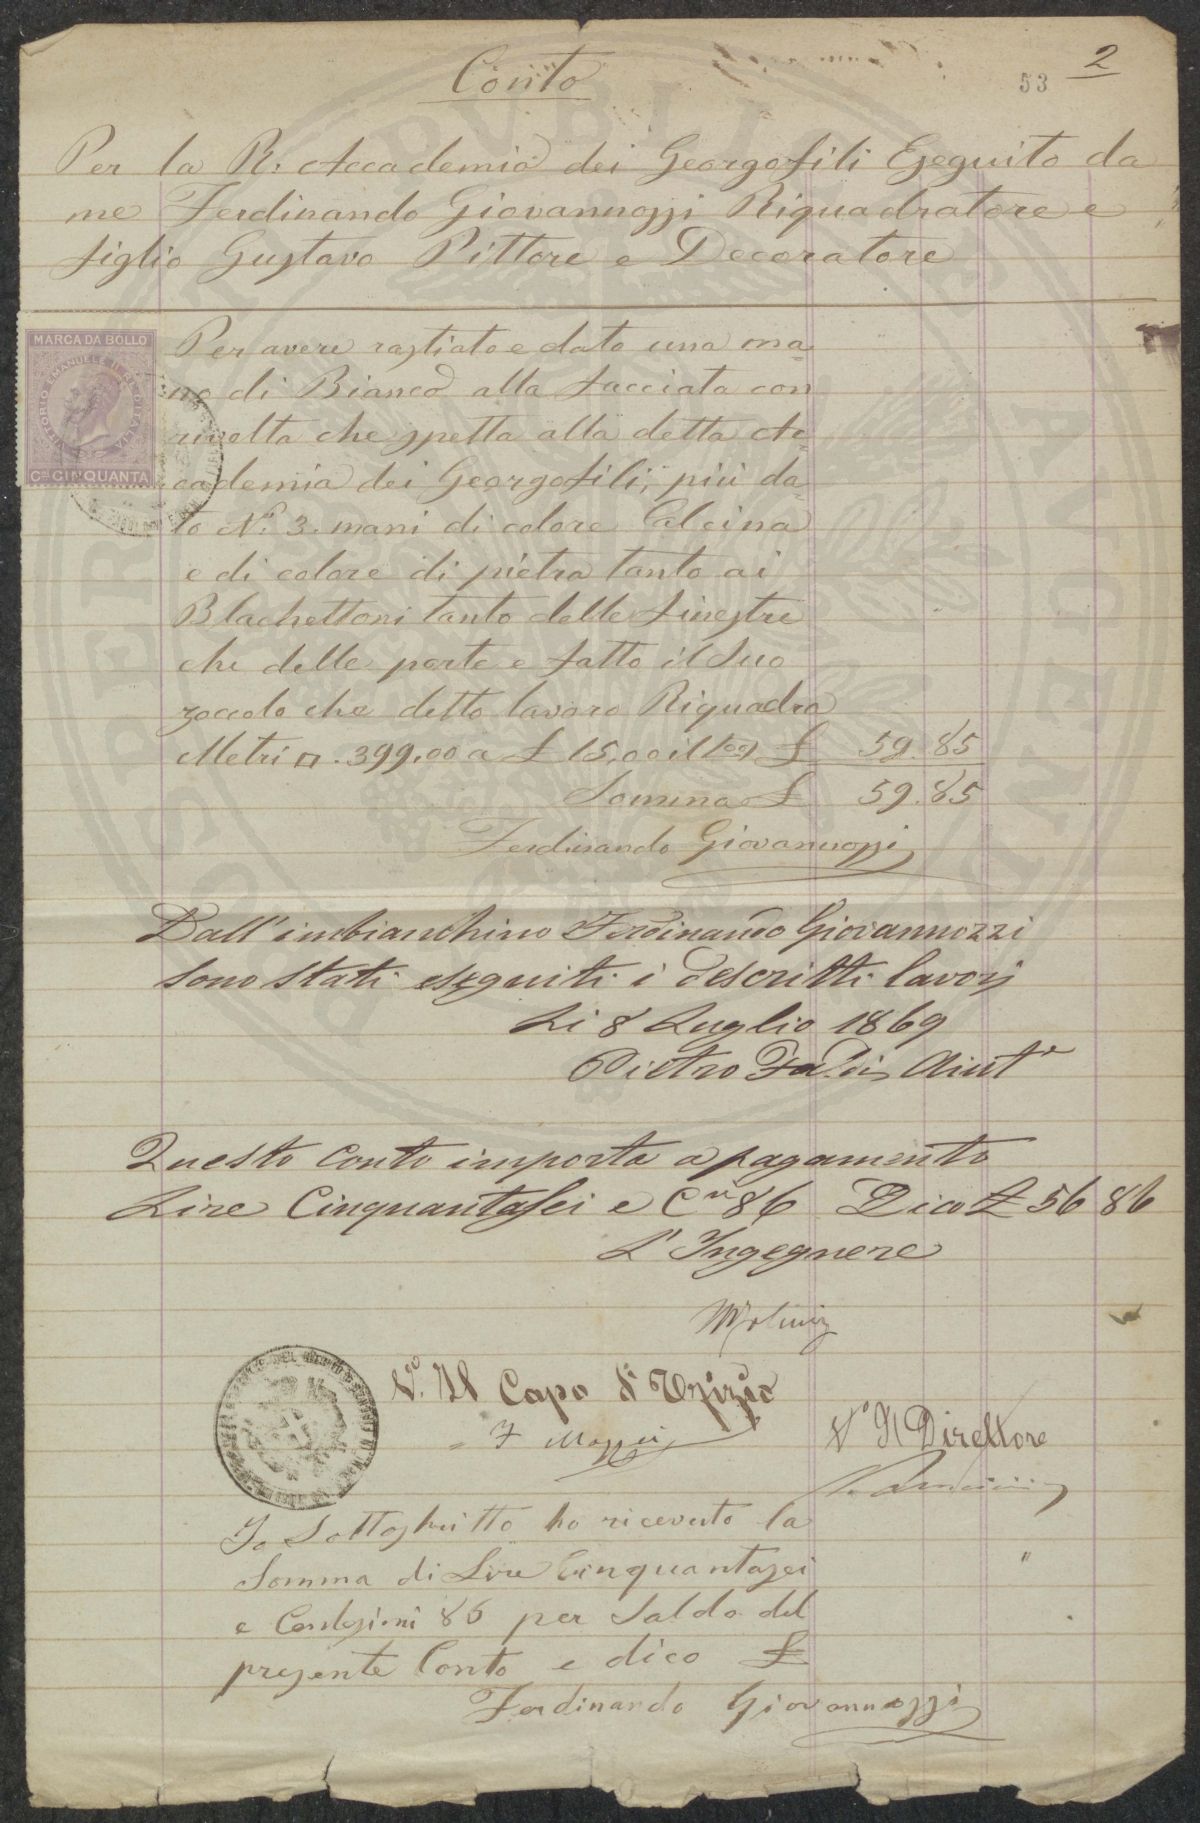 2
53
Conto
Per la R. Accademia dei Georgofili Eseguito da
me Ferdinando Giovannozzi Riquadratore e
figlio Gustavo Pittore e Decoratore
MARCA DA BOLLO
VITTORIO EMANUELE II RE D'ITALIA
CMI CINQUANTA
Per avere rastiato e dato una ma=
no di Bianco alla facciata con
rivolta che spetta alla detta Ac=
cademia dei Georgofili, più da=
to No. 3. mani di colore Calcina
e di colore di pietra tanto ai
Blachettoni tanto delle finestre
che delle porte e fatto il suo
zoccolo che detto lavoro Riquadra
Metri □. 399,00 a £ 15,00 il £ 59.85
Somma £ 59.85
Ferdinando Giovannozzi
Dall'imbianchino Ferdinando Giovannozzi
sono stati eseguiti i descritti lavori
Li 8 Luglio 1869
Pietro Aiute
Questo Conto importa a pagamento
Lire Cinquantasei e Cmi 86 Dico £ 56 86
L'Ingegnere
Vo. Il Capo d'Ufizio
F Mazzei
Vo Il Direttore
Io Sottoscritto ho ricevuto la
Somma di Lire Cinquantasei
e Centesimi 86 per Saldo del
presente Conto e dico £
Ferdinando Giovannozzi